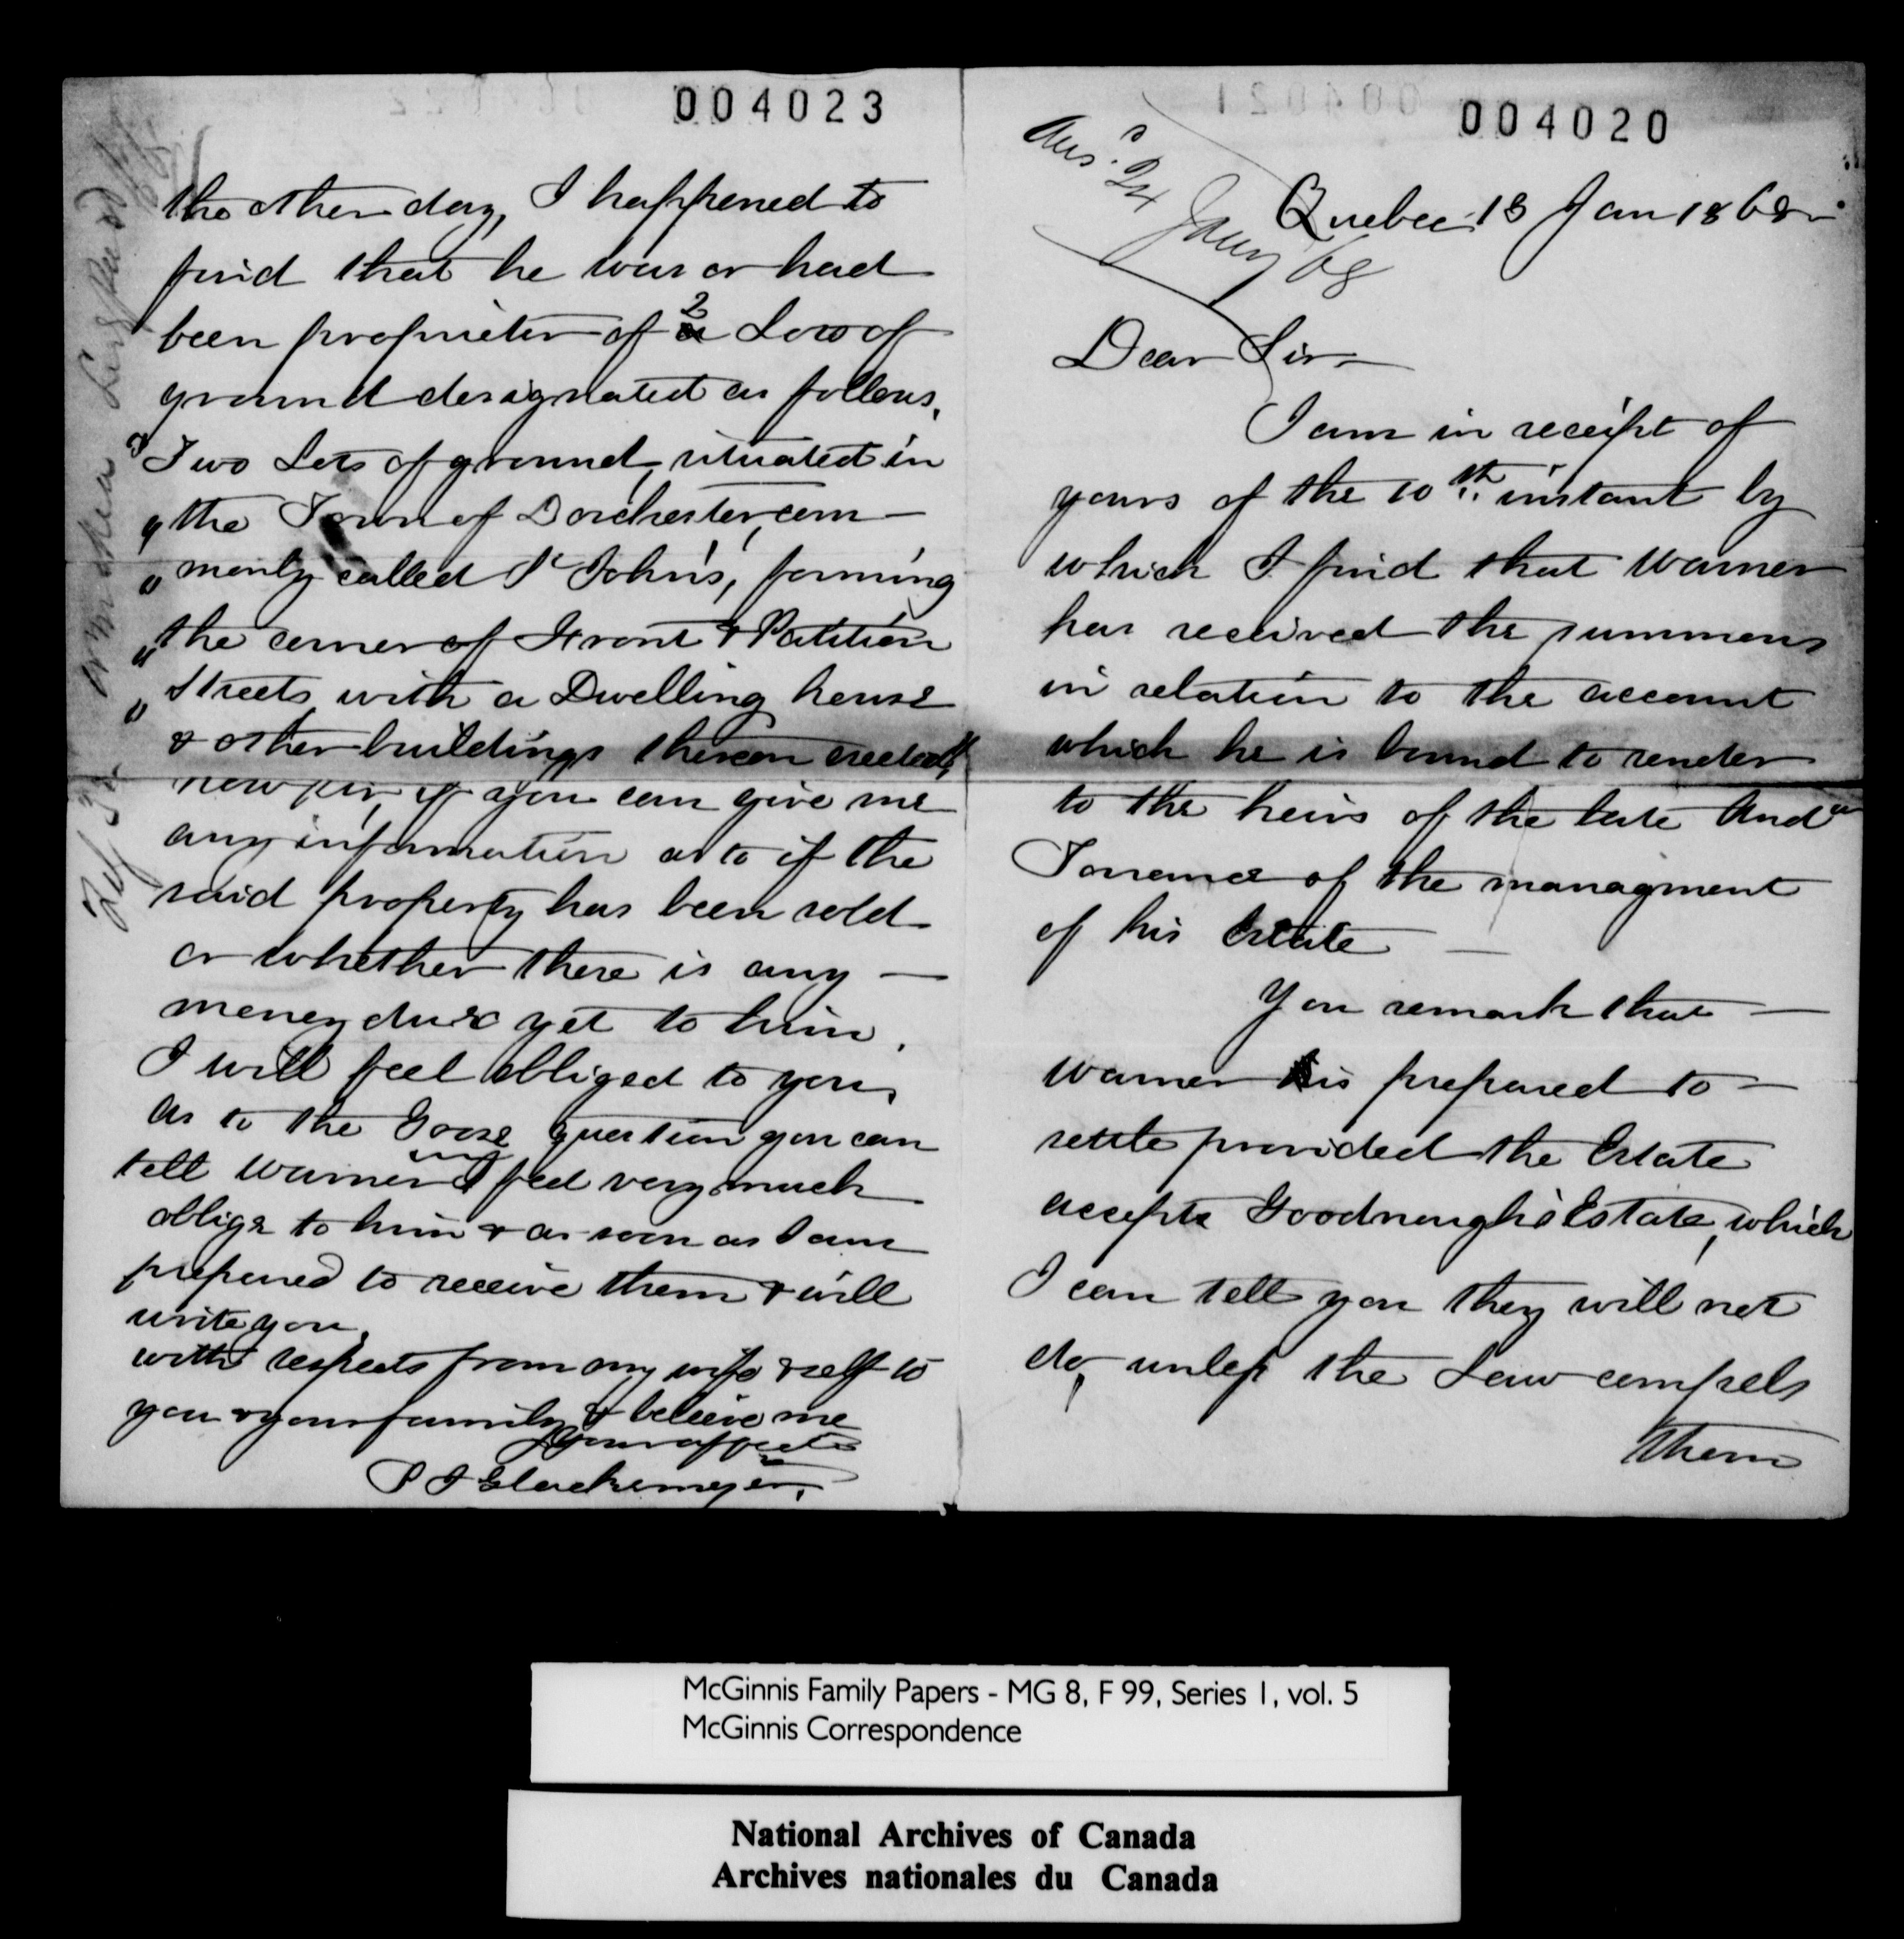 004023
the other day, I happened to
find that he was or had
been proprietor of 2 Lots of
ground designated as follows,
"Two Lots of ground, situated in
" the Town of Dorchester, com-
" monly called St John's, forming
" the corner of Front & Partition
" Streets, with a Dwelling house
& other buildings thereon erected"
now sir, if you can give me
any information as to if the
said property has been sold
or whether there is any —
money due yet to him,
I will feel obliged to you,
as to the Goose question you can
tell Warner I feel very much
oblige to him & as soon as I am
prepared to receive them I will
write you,
with respects from my wife & self to
you & your family & believe me
your affecte
P I Glackemeyer,
004020
Ansd. 24 Jany 68
Quebec 13 Jan 1868
Dear Sir
I am in receipt of
yours of the 10th instant by
which I find that Warner
has received the summons
in relation to the account
which he is bound to render
to the heirs of the late Andw
Torrance of the managment
of his Estate —
You remark that —
Warner is prepared to —
settle provided the Estate
accepts Goodnough's Estate, which
I can tell you they will not
do, unless the Law compels
them
McGinnis Family Papers - MG 8, F 99, Series 1, vol. 5
McGinnis Correspondence
National Archives of Canada
Archives nationales du Canada